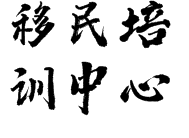 移民培
训中心